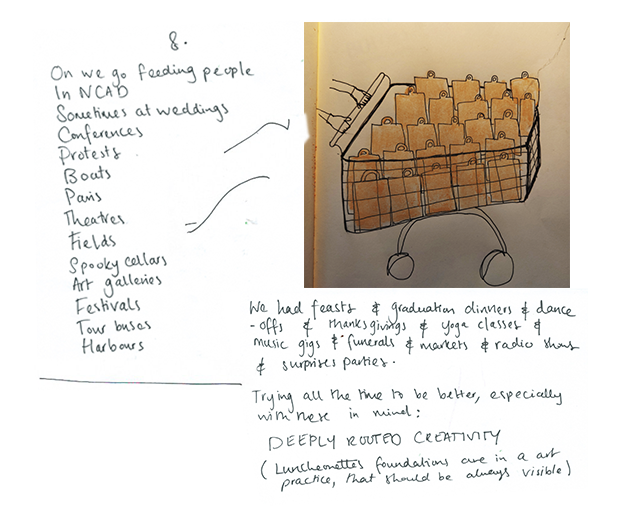 8.
On we go feeding people
In NCAD
Sometimes at weddings
Conferences
Protests
Boats
Paris
Theatres
Fields
Spooky cellars
Art galleries
Festivals
Tour buses
Harbours
We had feasts & graduation dinners & dance
-offs & thanksgivings & yoga classes &
music gigs & funerals & markets & radio shows
& surprises parties.
Trying all the time to be better, especially
with these in mind:
DEEPLY ROOTED CREATIVITY
(Luncheonettes foundations are in a art
practice, that should be always visible)